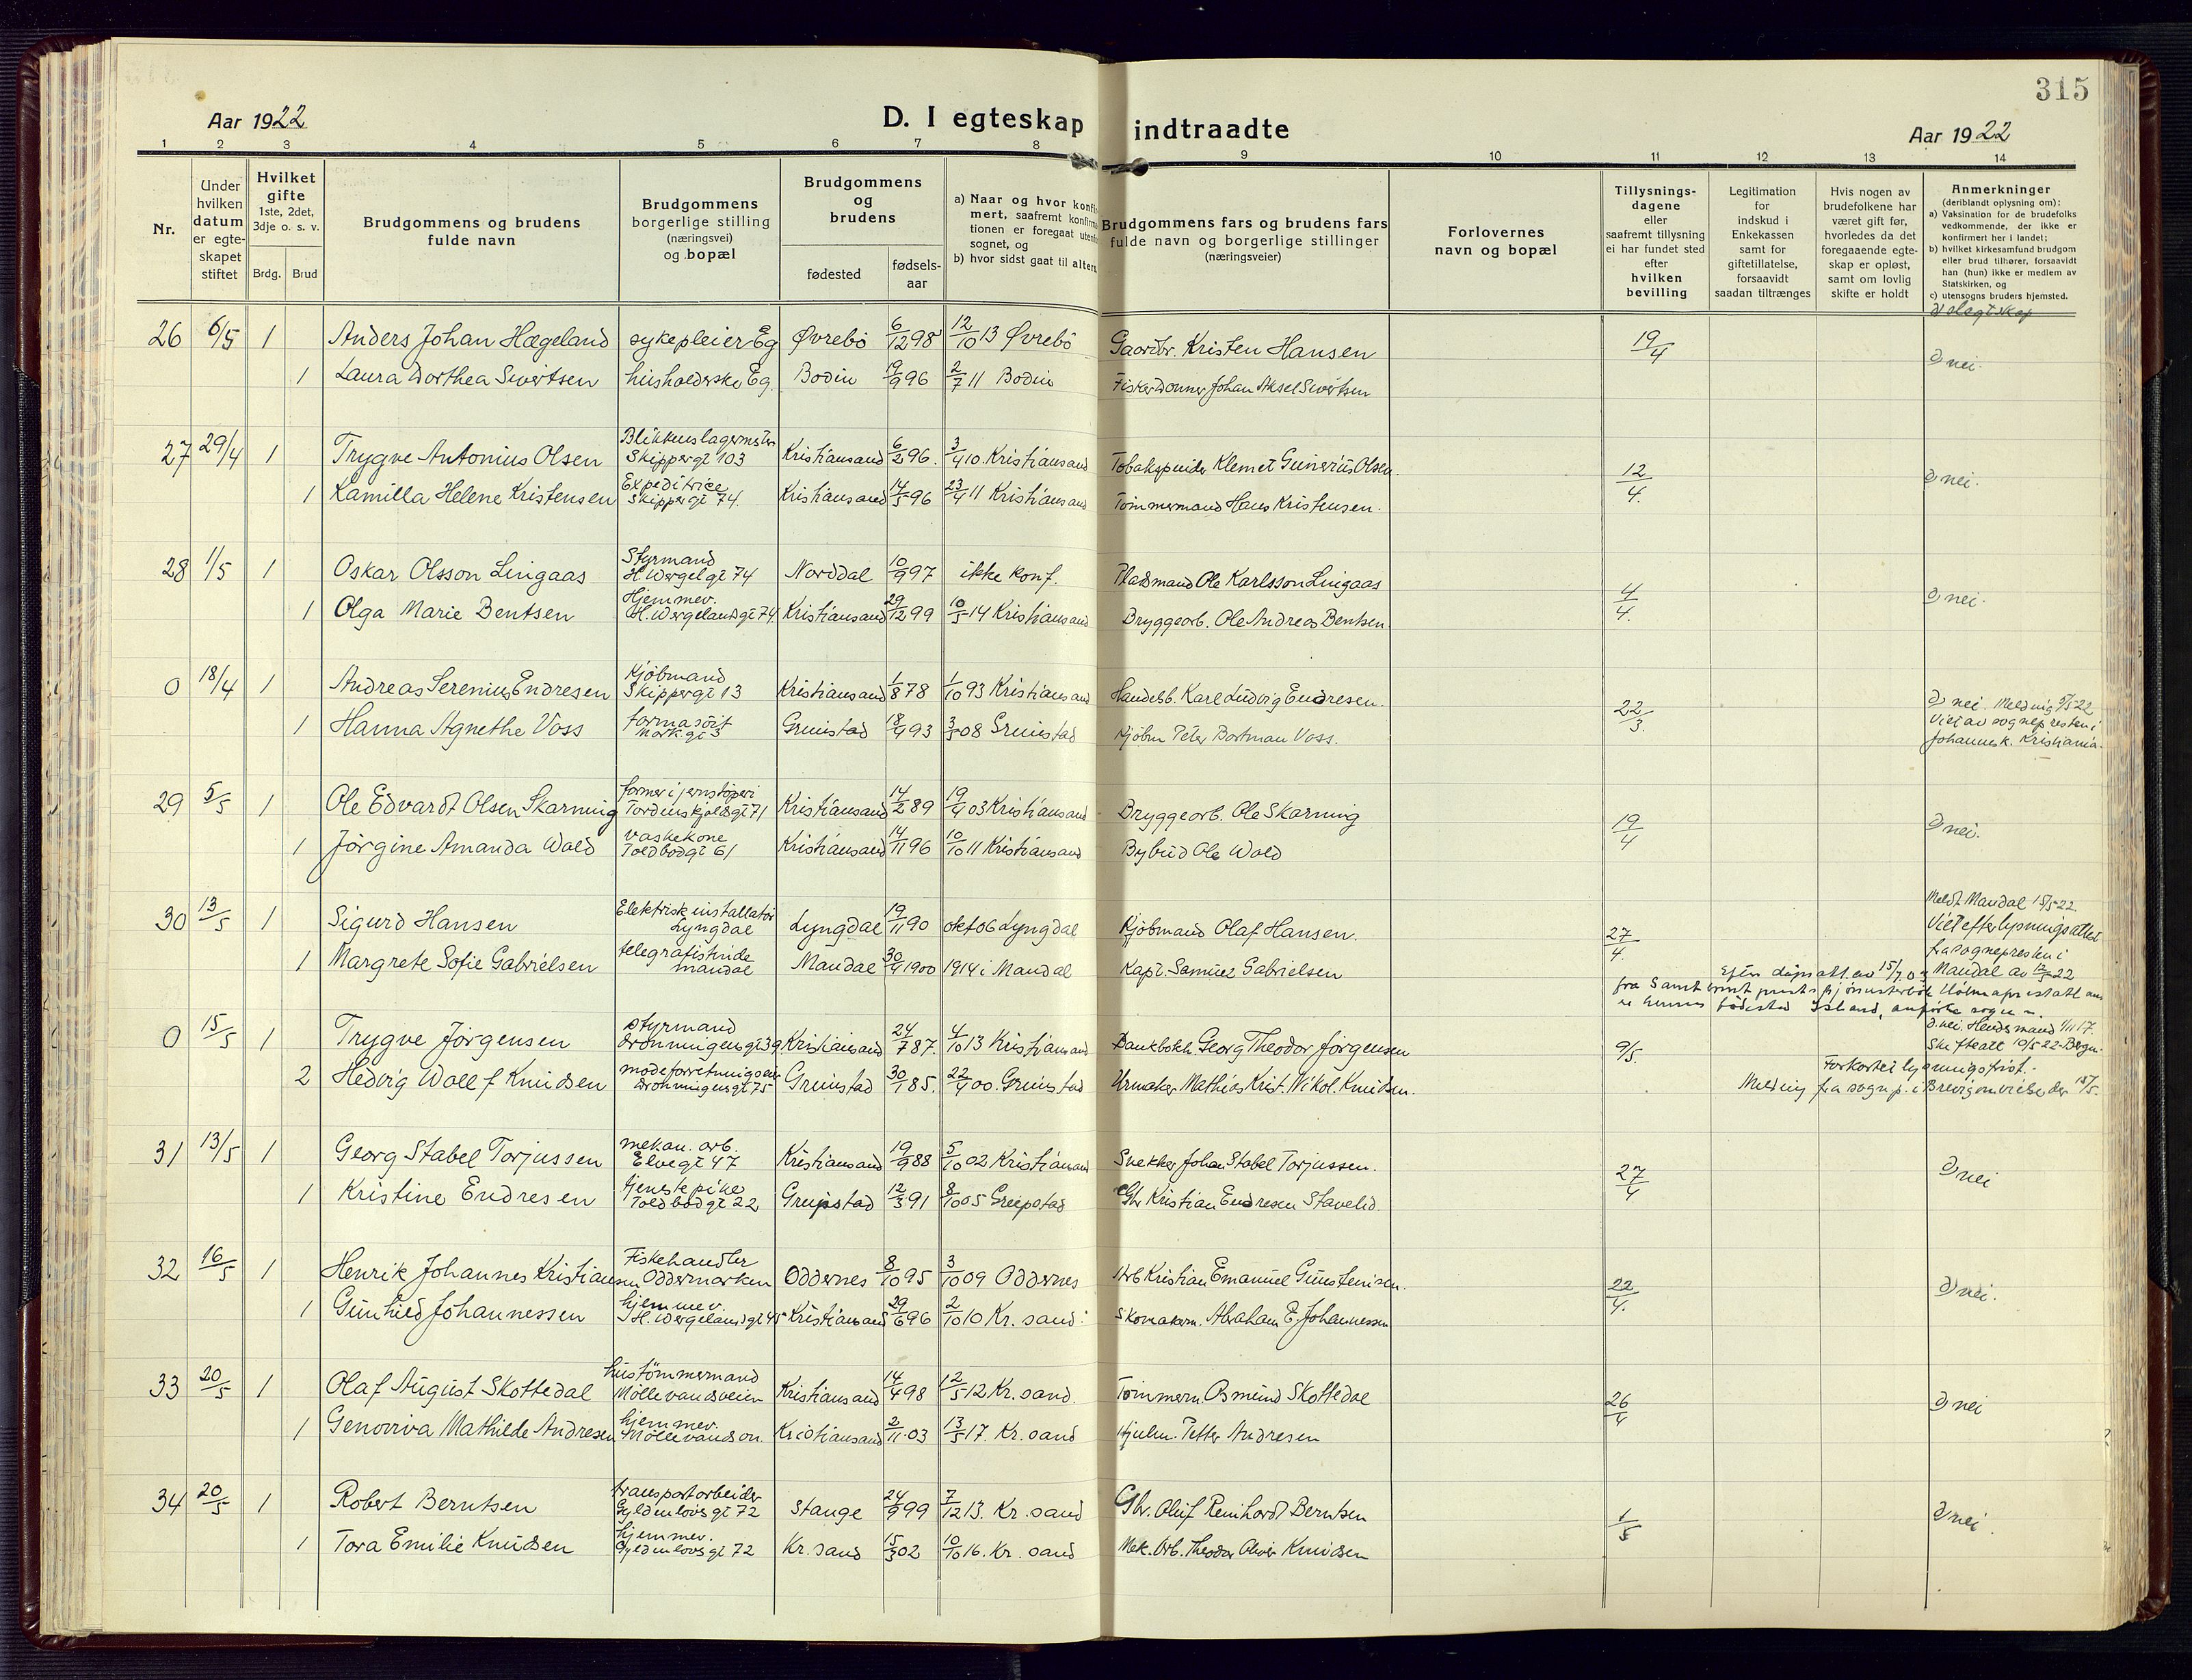 315
Aar 1922
D. I egteskap indtraadte
Aar 1922
1 2 3 4 5 6 7 8 9 10 11 12 13 14
Nr.
Under hvilken datum er egteskapet stiftet
Hvilket gifte 1ste, 2det, 3dje o. s. v.
Brdg. Brud
Brudgommens og brudens fulde navn
Brudgommens borgerlige stilling (næringsvei) og bopæl
Brudgommens og brudens
fødested
fødsels-aar
a) Naar og hvor konfir
mert, saafremt konfirma
tionen er foregaat utenfor
sognet, og
b) hvor sidst gaat til alters
Brudgommens fars og brudens fars
fulde navn og borgerlige stillinger
(næringsveier)
Forlovernes
navn og bopæl
Tillysnings-
dagene
eller
saafremt tillysning
ei har fundet sted
efter
hvilken
bevilling
Legitimation
for
indskud i
Enkekassen
samt for
giftetillatelse,
forsaavidt
saadan tiltrænges
Hvis nogen av
brudefolkene har
været gift før,
hvorledes da det
foregaaende egte-
skap er opløst,
samt om lovlig
skifte er holdt
Anmerkninger
(deriblandt oplysning om):
a) Vaksination for de brudefolks
vedkommende, der ikke er
konfirmert her i landet;
b) hvilket kirkesamfund brudgom
eller brud tilhører, forsaavidt
han (hun) ikke er medlem av
Statskirken, og
c) utensogns bruders hjemsted.
d) slegtskap
26 6/5 1 Anders Johan Hægeland sykepleier Eg Øvrebö 6/12 98 12/10 13 Øvrebö Gaardbr. Kristen Hansen 19/4 d nei.
1 Laura Dorthea Sivertsen husholderske Eg. Bodin 19/9 96 2/7 11 Bodin Johan Aksel Sivertsen
27 29/4 1 Trygve Antonius Olsen Blikkenslagermester Skippergt 103 Kristiansand 6/2 96. 3/4 10. Kristiansand Klemet Gunerius Olsen. 12/4. d nei.
1 Kamilla Helene Kristensen Expeditrice Skippergt 74. Kristiansand 14/5 96 23/4 11 Kristiansand Tømmermand Hans Kristensen.
28 1/5 1 Oskar Olsson Lingaas Styrmand H. Wergelgt 74 Norddal 10/9 97 ikke konf. Pladsmand Ole Karlsson Lingaas 4/4. d nei.
1 Olga Marie Bentsen Hjemmev. H. Wergelandsgt 74 Kristiansand 29/12 99 10/5 14 Kristiansand Bryggearb. Ole Andreas Bentsen
0 18/4 1 Andreas Serenius Endresen Kjöbmand Skippergt 13 Kristiansand 1/8 78 1/10 93 Kristiansand Handelsb. Karl Ludvig Endresen. 22/3. d nei. Melding 5/5 22
Viet av sognepresten i
Johannesk. Kristiania.
1 Hanna Agnethe Voss Mark.gt 3 Grimstad 18/9 93 3/5 08 Grimstad Kjöbm Peter Bortman Voss.
29 5/5 1 Ole Edvardt Olsen Skarning former i jernstöperi Tordenskjoldsgt 71 Kristiansand 14/2 89 19/4 03 Kristiansand Bryggearb. Ole Skarning 19/4 d nei.
1 Jörgine Amanda Wold vaskekone Toldbodgt 61 Kristiansand 14/11 96 10/10 11 Kristiansand Bybud Ole Wold
30 13/5 1 Sigurd Hansen Elektrisk installatør Lyngdal Lyngdal 19/11 90 okt 06 Lyngdal Kjöbmand Olaf Hansen. 27/4. Meldt Mandal 15/5-22.
Viet efter lysningsattest
fra sognepresten i
Mandal av 12/5-22
1 Margrete Sofie Gabrielsen telegrafistinde Mandal Mandal 30/9 1900 1914 i Mandal Kapt. Samuel Gabrielsen
0 15/5 1 Trygve Jörgensen styrmand Dronningensgt 39 Kristiansand 24/7 87. 4/10 13 Kristiansand Bankbokh. Georg Theodor Jörgensen 9/5. d. nei.
Forkortet lysningsfrist.
2 Hedvig Wollf Knudsen modeforretningsen Dronningensgt 75 Grimstad 30/1 85. 22/4 00. Grimstad Urmaker Mathias Krist. Nikol. Knudsen. Melding fra sognep. i Brevig om vielse der 15/5.
31 13/5 1 Georg Stabel Torjussen mekan. arb. Elvegt 47 Kristiansand 19/9 88 5/10 02 Kristiansand Snekker Johan Stabel Torjussen. 27/4 d nei
1 Kristine Endresen tjenestepike Toldbodgt 22 Greipstad 12/3 91 8/10 05 Greipstad Gbr Kristian Endresen Stavelid.
32 16/5 1 Henrik Johannes Kristiansen Fiskehandler Oddermarken Oddernes 8/10 95 3/10 09 Oddernes Arb Kristian Emanuel Gunstensen. 22/4. d nei.
1 Gunhild Johannessen hjemmev. H. Wergelandsgt 45 Kristiansand 29/6 96 2/10 10 Kr. sand Skomakerm. Abraham E. Johannessen
33 20/5 1 Olaf August Skottedal hustömmermand Möllevandsveien Kristiansand 14/4 98 12/5 12 Kr. sand. Tömmerm. Osmund Skottedal 26/4 d nei
1 Genoviva Mathilde Andresen hjemmev. Möllevandsv. Kristiansand 2/11 03 13/5 17. Kr. sand Hjulm. Petter Andresen
34 20/5 1 Robert Berntsen transportarbeider Gyldenlövsgt 72 Stange 24/9 99 7/12 13. Kr. sand Gbr. Oluf Reinhardt Berntsen 1/5 d nei.
1 Tora Emilie Knudsen hjemmev. Gyldenlövsgt 72 Kr. sand 15/3 02 10/10 16. Kr. sand Mek. Arb. Theodor Oliver Knudsen